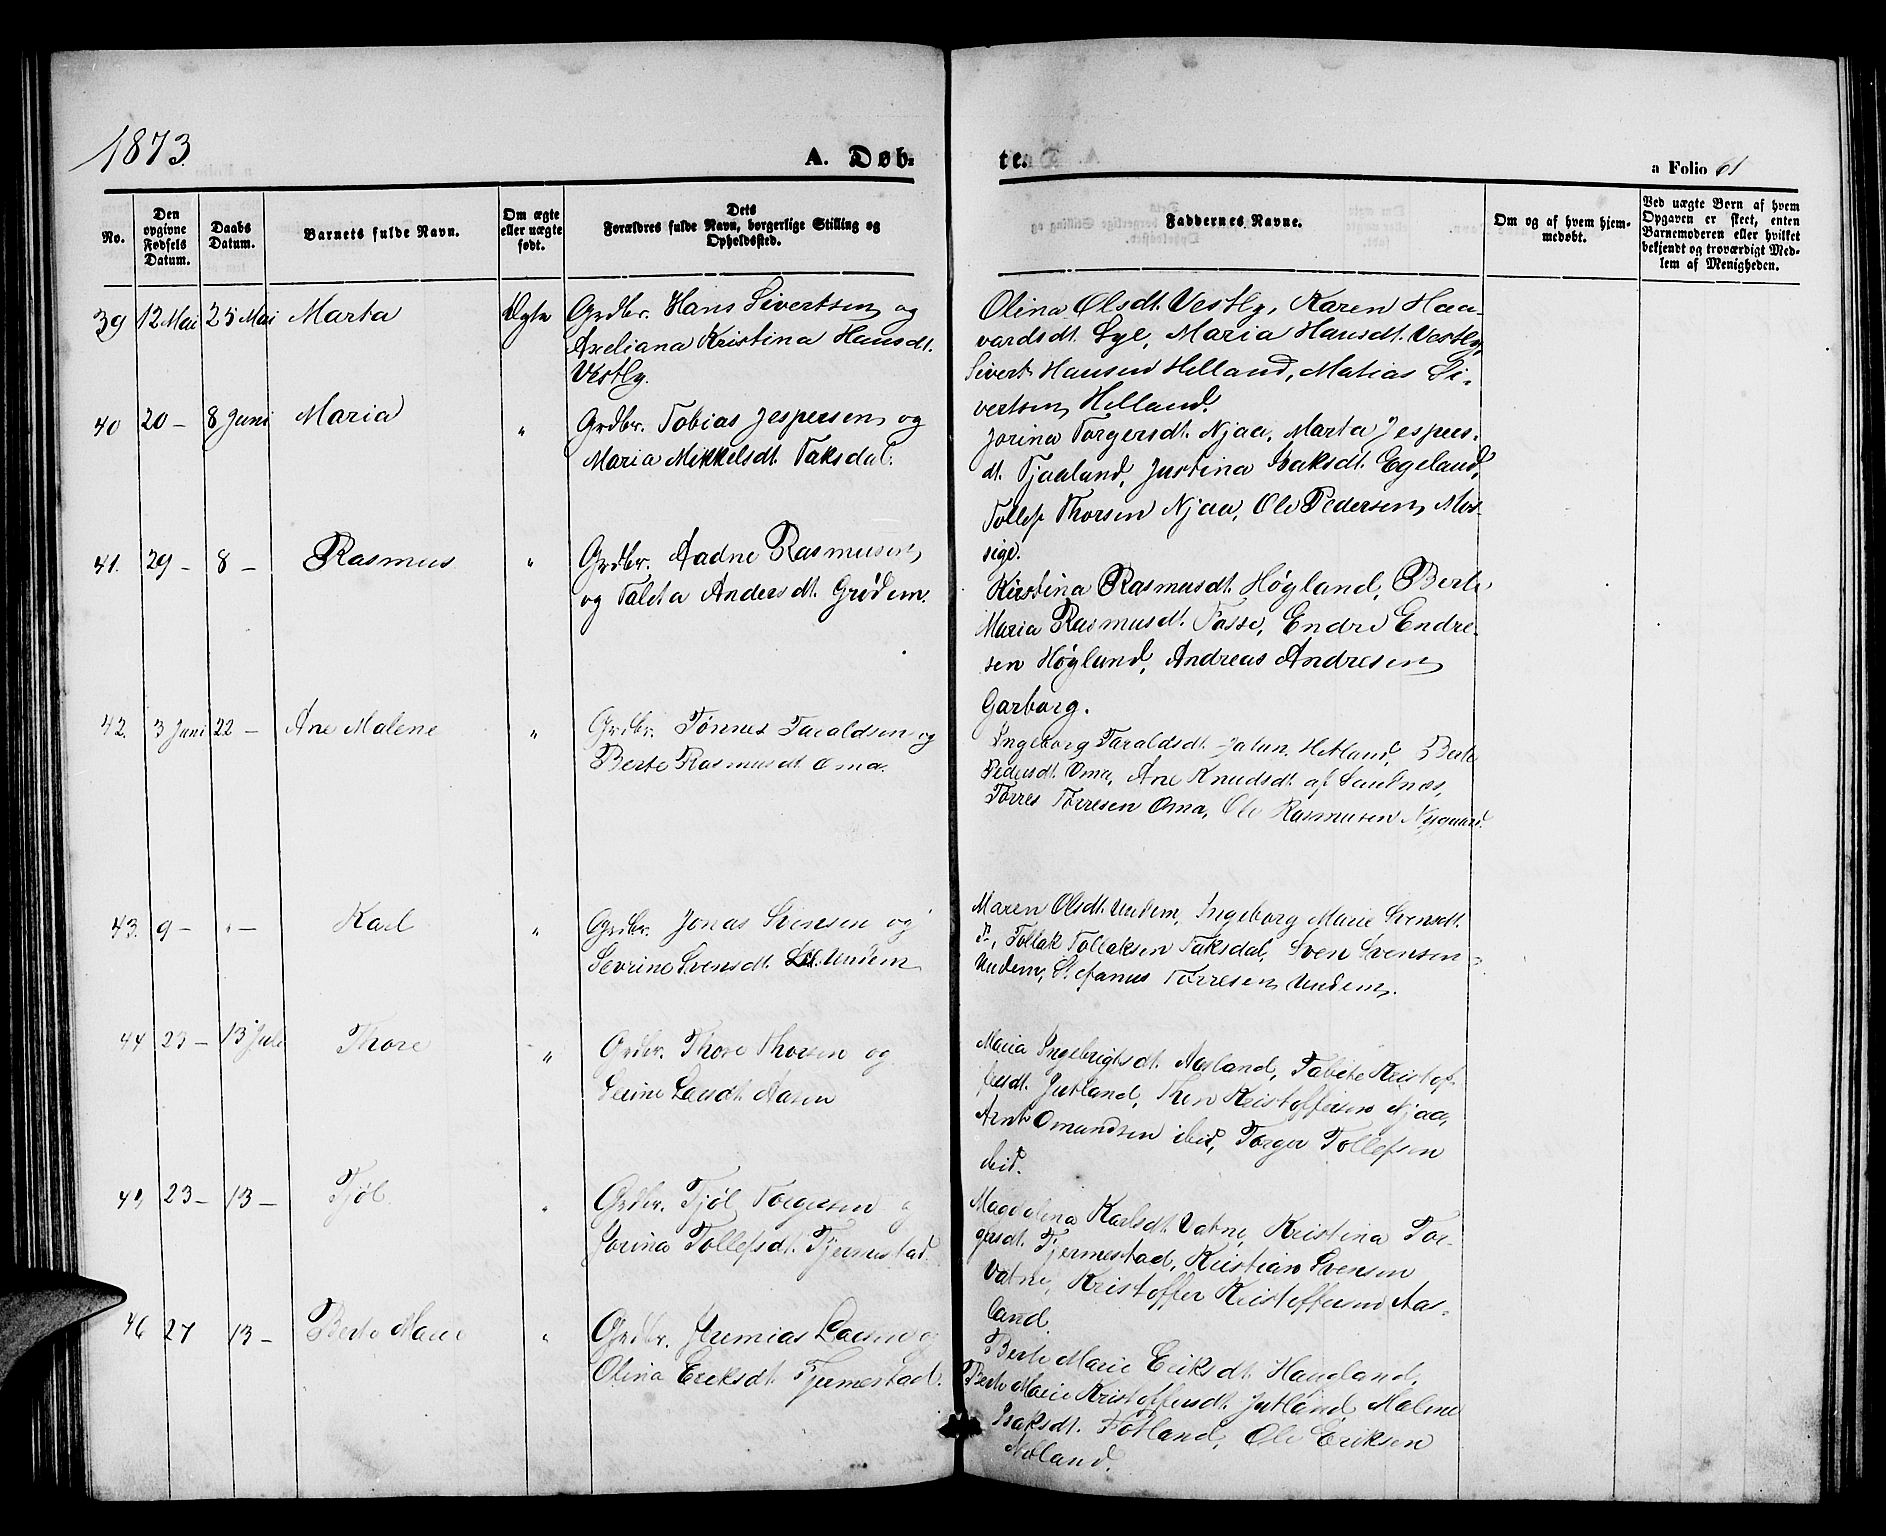 1873
A. Døb-
te.
a Folio 61
No.
Den opgivne Fødsels Datum.
Daabs Datum.
Barnets fulde Navn.
Om ægte eller uægte født.
Dets Forældres fulde Navn, borgerlige Stilling og Opholdssted.
Faddernes Navne.
Om og af hvem hjemmedøbt.
Ved uægte Børn af hvem Opgaven er skeet, enten Barnemoderen eller hvilket bekjendt og troværdigt Medlem af Menigheden.
39 12 Mai 25 Mai Marta Ægte Grdbr. Hans Sivertsen og
Axeliana Kristina Hansdt.
Vestly.
Olina Olsdt. Vestly, Karen Haa-
vardsdt. Lye, Maria Hansdt. Vestly,
Sivert Hansen Helland, Matias Si-
vertsen Helland.
40 20 - 8 Juni Maria " Grdbr. Tobias Jespersen og
Maria Mikkelsdt. Taksdal.
Jorina Torgersdt. Njaa, Marta Jespers-
dt. Tjaaland, Justina Isaksdt. Egeland,
Tollef Thorsen Njaa, Ole Pedersen Mos-
sige.
41. 29 - 8 - Rasmus " Grdbr. Aadne Rasmusen
og Taleta Andersdt. Grødem.
Kirstina Rasmusdt. Høgland, Berte
Maria Rasmusdt. Fosse, Endre Endre-
sen Høgland, Andreas Andresen
Garborg.
42. 3 Juni 22 - Ane Malene " Grdbr. Tønnes Taraldsen og
Berte Rasmusdt. Oma.
Ingeborg Taraldsdt. Hetland, Berte
Pedersdt. Oma, Ane Knudsdt. af Sandnæs,
Torres Torresen Oma, Ole Rasmusen Nygaard.
43. 9 - " - Karl " Grdbr. Jonas Svensen og
Sevrine Svensdt. Undem
Maren Olsdt. Undem, Ingeborg Marie Svensdt.
Tollak Tollaksen Taksdal, Sven Svensen
Undem, Stefanus Torresen Undem.
44 23 - 13 Juli Thore " Grdbr. Thore Thorsen og
Serine Larsdt. Aasen
Maria Ingebrigtsdt. Aasland, Tabite Kristof-
fersdt. Jutland, Thor Kristoffersen Njaa,
Arnt Omundsen ibid, Torger Tollefsen
ibid.
45 23 - 13 - Tjøl. " Grdbr. Tjøl Torgersen og
Jorina Tollefsdt. Tjermestad.
Magdalena Karlsdt. Vatne, Kristina Tor-
gersdt. Fjermestad, Kristian Svensen
Vatne, Kristoffer Kristoffersen Aas-
land.
46 27 13 - Berte Marie " Grdbr. Jeremias Larsen og
Olina Eriksdt. Fjermestad.
Berte Marie Eriksdt. Haugland,
Berte Marie Kristoffersdt. Jutland, Malene
Isaksdt. Fotland, Ole Eriksen